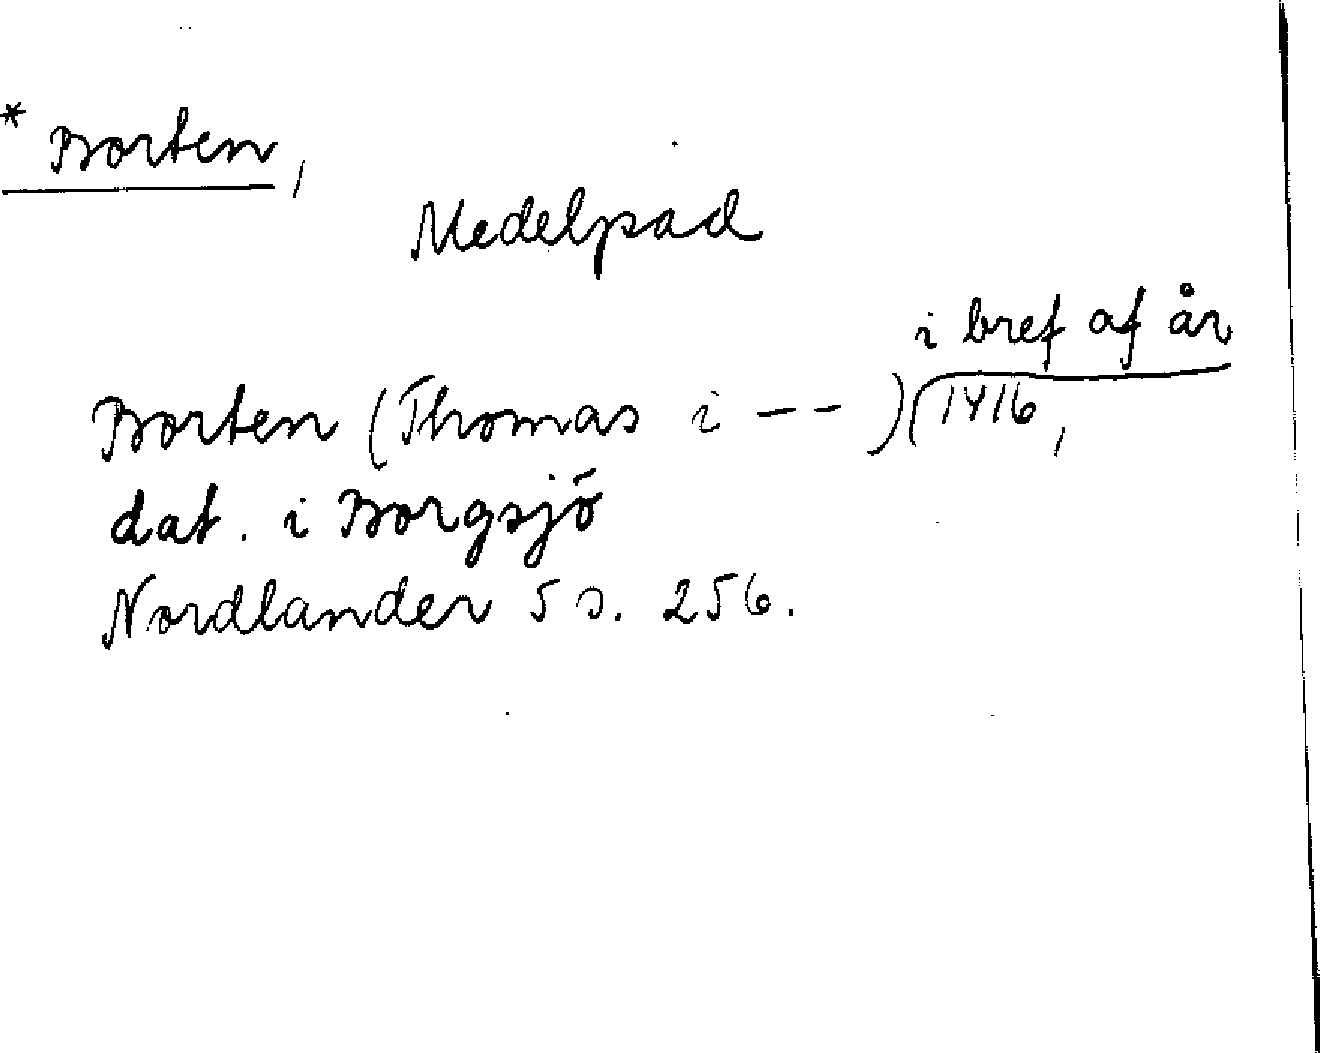 * Borten,
Medelpad
i bref af år
Borten (Thomas i -- ) 1416,
dat. i Borgsjö
Nordlander 5 s. 256.